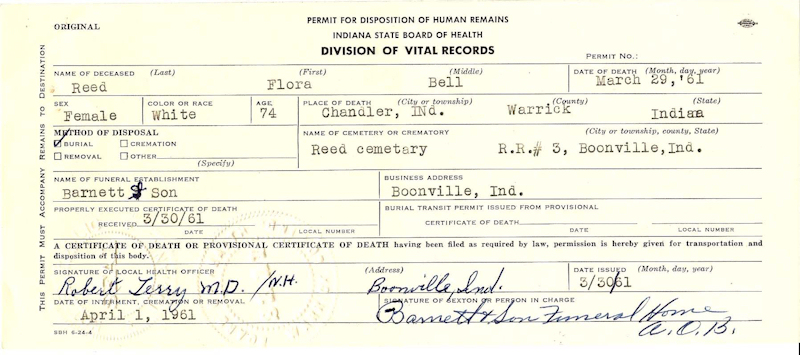 ORIGINAL
PERMIT FOR DISPOSITION OF HUMAN REMAINS
INDIANA STATE BOARD OF HEALTH
DIVISION OF VITAL RECORDS
PERMIT NO.:
THIS PERMIT MUST ACCOMPANY REMAINS TO DESTINATION
NAME OF DECEASED (Last) (First) (Middle) DATE OF DEATH (Month, day, year)
Reed Flora Bell March 29, '61
SEX COLOR OR RACE AGE PLACE OF DEATH (City or township) (County) (State)
Female White 74 Chandler, INd. Warrick Indiaa
METHOD OF DISPOSAL NAME OF CEMETERY OR CREMATORY (City or township, county, State)
BURIAL CREMATION Reed cemetary R.R.# 3, Boonville,Ind.
REMOVAL OTHER
(Specify)
NAME OF FUNERAL ESTABLISHMENT BUSINESS ADDRESS
Barnett & Son Boonville, Ind.
PROPERLY EXECUTED CERTIFICATE OF DEATH BURIAL TRANSIT PERMIT ISSUED FROM PROVISIONAL
RECEIVED 3/30/61 CERTIFICATE OF DEATH
DATE LOCAL NUMBER DATE LOCAL NUMBER
A CERTIFICATE OF DEATH OR PROVISIONAL CERTIFICATE OF DEATH having been filed as required by law, permission is hereby given for transportation and
disposition of this body.
SIGNATURE OF LOCAL HEALTH OFFICER (Address) DATE ISSUED (Month, day, year)
Robert Terry M.D. /N.H. Boonville, Ind. 3/30/61
DATE OF INTERMENT, CREMATION OR REMOVAL SIGNATURE OF SEXTON OR PERSON IN CHARGE
April 1, 1961 Barnett & Son Funeral Home
A.O.B.
SBH 6-24-4